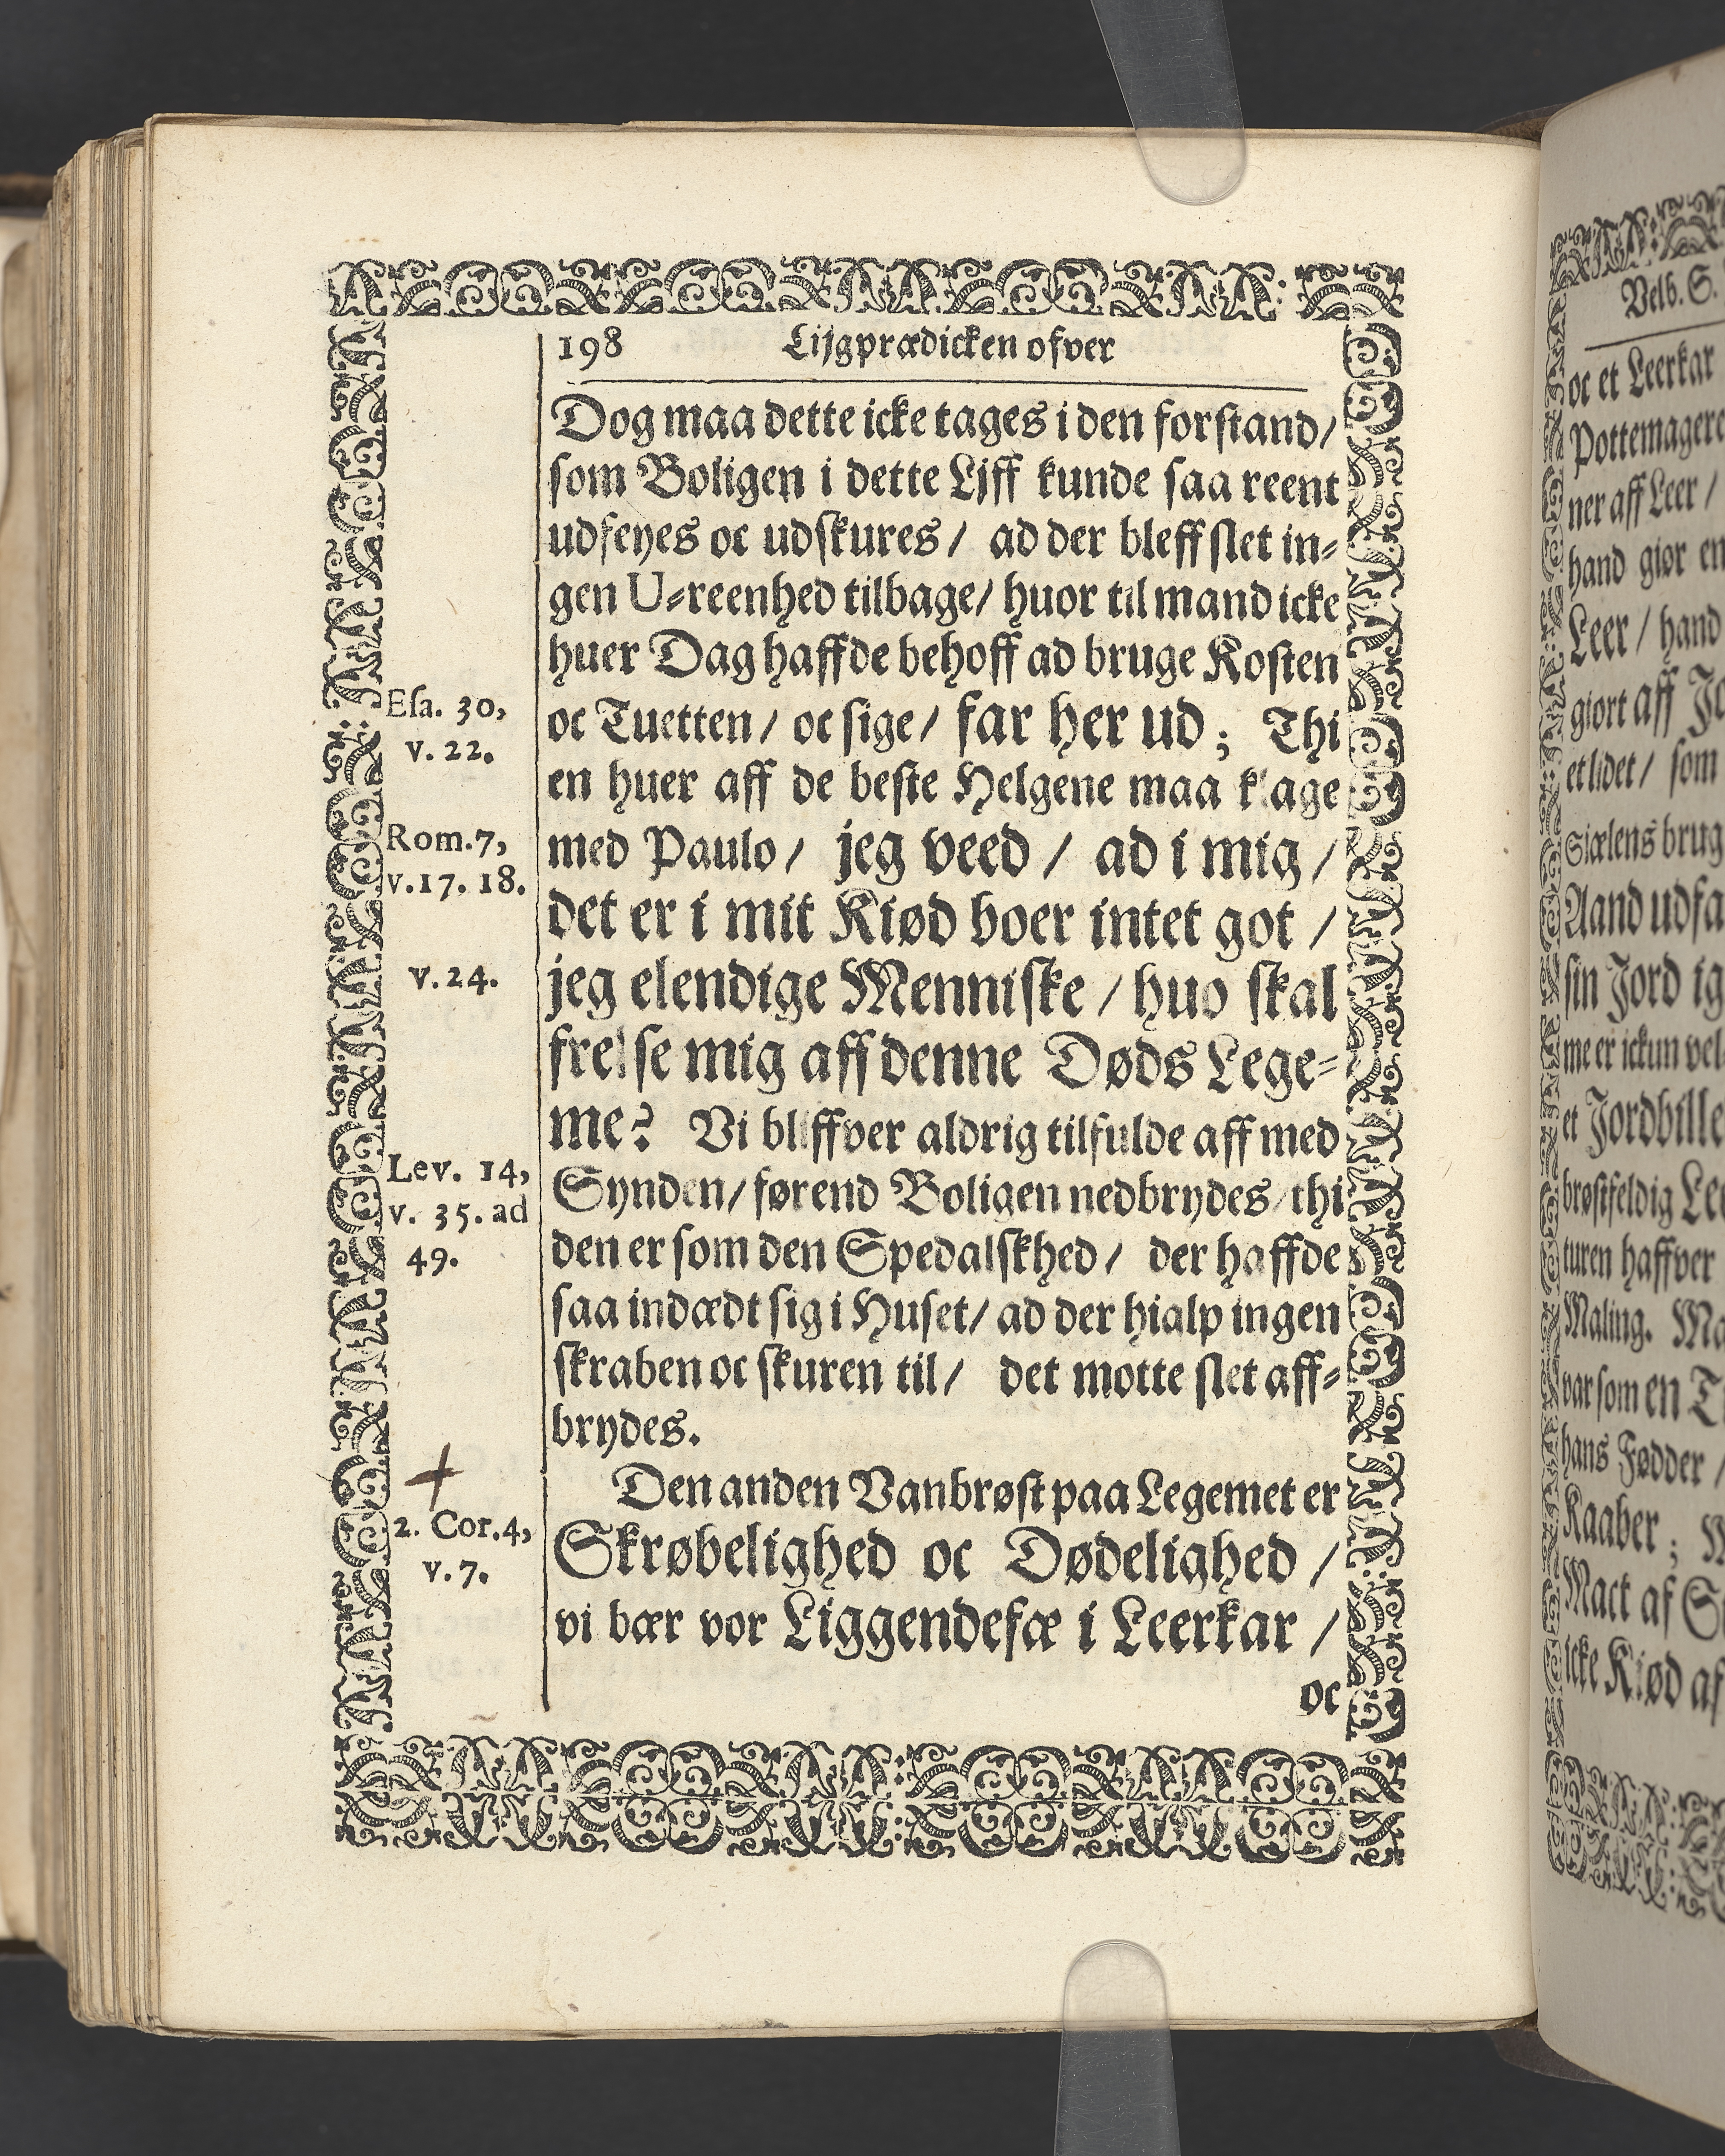 198 Lijgprædicken ofver
Dog maa dette icke tages i den forstand/
som Boligen i dette Ljff kunde saa reent
udfeyes oc udskures/ ad der bleff slet in-
gen U-reenhed tilbage/ huor til mand icke
huer Dag haffde behoff ad bruge Kosten
Esa. 30,
v. 22.
oc Tuetten/ oc sige/ far her ud; Thi
en huer aff de beste Helgene maa klage
Rom.7,
v.17. 18.
med Paulo/ jeg veed/ ad i mig/
det er i mit Kiød boer intet got/
v.24.
jeg elendige Menniske/ huo skal
frelse mig aff denne Døds Lege-
me? Vi bliffver aldrig tilfulde aff med
Lev. 14,
v. 35. ad
49.
Synden/ førend Boligen nedbrydes/ thi
den er som den Spedalskhed/ der haffde
saa indædt sig i Huset/ ad der hialp ingen
skraben oc skuren til/ det motte slet aff-
brydes.
Den anden Vanbrøst paa Legemet er
2. Cor.4,
v.7.
Skrøbelighed oc Dødelighed/
vi bær vor Liggendefæ i Leerkar/
oc
Velb. S.
oc et Leerkar
Pottemagere
ner aff Leer/
hand giør en
Leer/ hand
giort aff
et lidet/ som
Siælens brug
Aand udfa
sin Jord ig
me er ickun vel
et Jordbille
brøstfeldig
turen haffver
Maling.
var som en
hans Fødder/
Kaaber;
Mact af
icke Kiød af